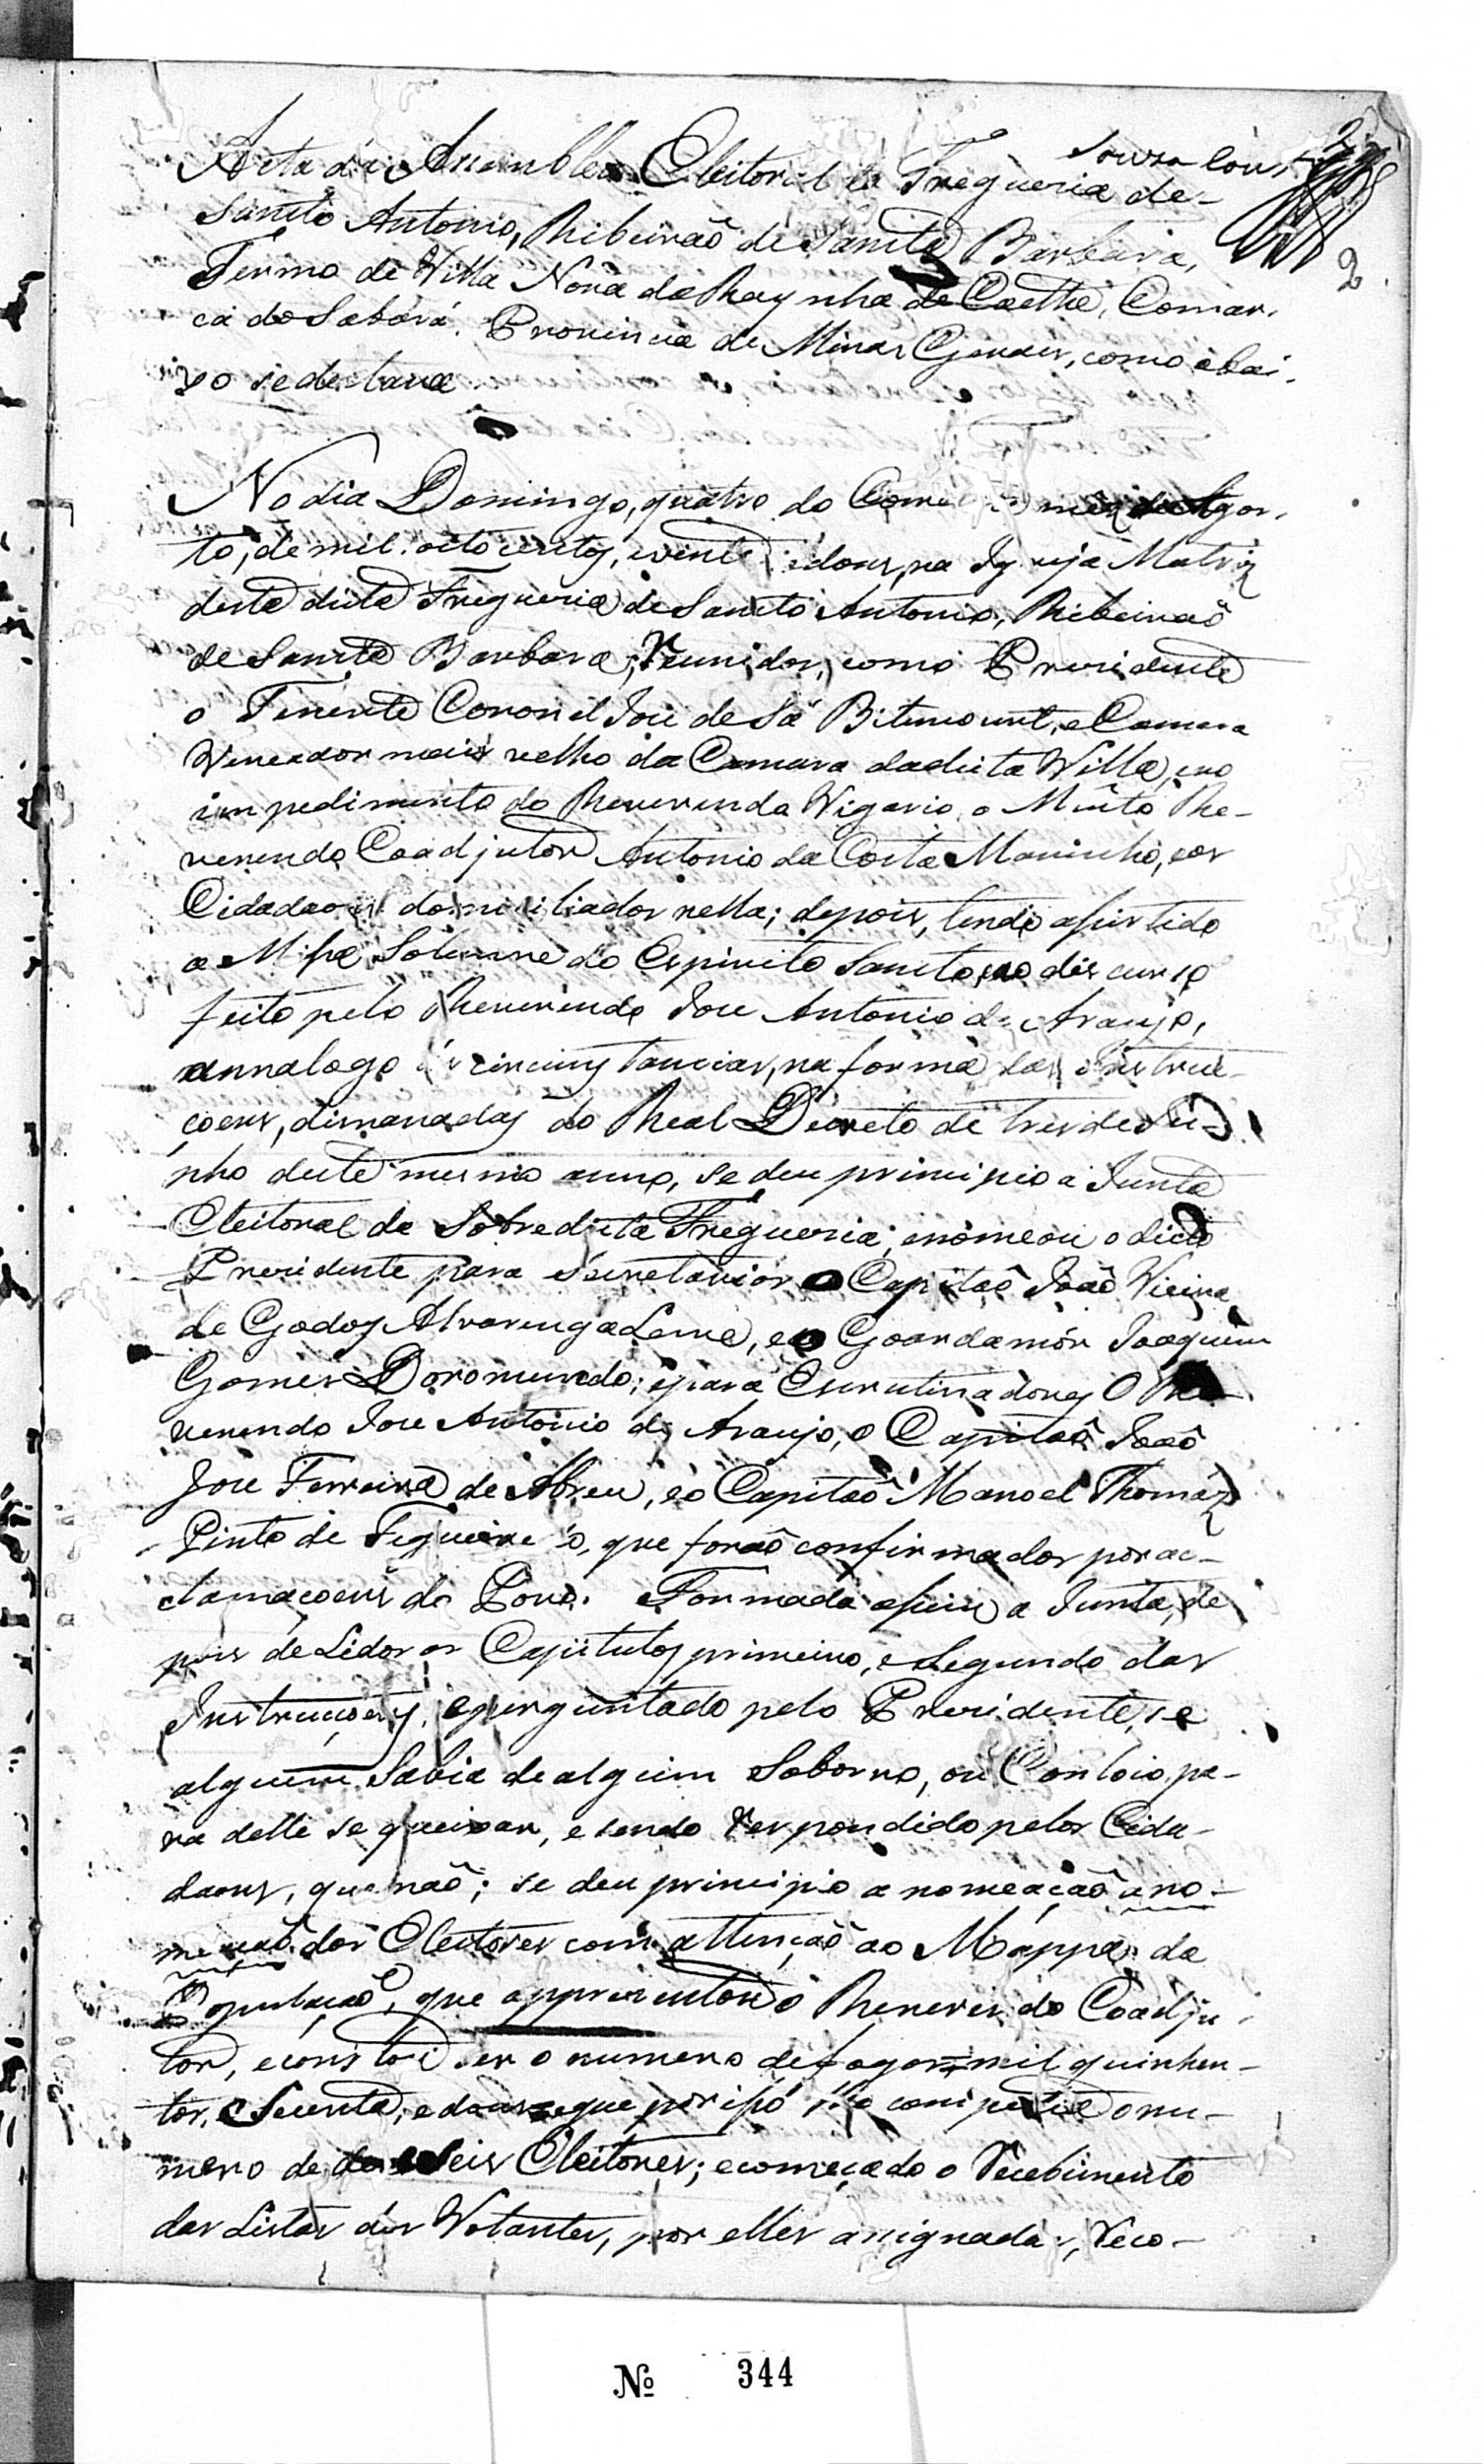 Souza Cou
2
Acta da Assemblea Eleitoral da Freguezia de
Sancto Antonio, Ribeiraõ de Sancta Barbara,
2
Termo de Villa Nova da Raynha de Caethé, Comar-
ca do Sabará. Provincia de Minas Geraes, como abai-
xo se declara
No dia Domingo, quatro do Corre mês de Agos-
to, de mil oito centos, e vinte e dous, na Igreja Matriz
desta dicta Freguezia de Sancto Antonio, Ribeiraõ
de Sancta Barbara, Reunidos, como Presidente
o Tenente Coronel Joze de Sá Bitencourt, e Camara
Vereador mais velho da Camara da dicta Villa, e no
impedimento do Reverendo Vigario, o Muito Re-
verendo Coadjutor Antonio da Costa Marinho, e os
Cidadaons domiciliados nella; depois, tendo assistido
a Missa Solemne do Espirito Sancto, e ao discurso
feito pelo Reverendo Joze Antonio de Araujo,
annalogo ás circunstancias, na forma das Instruc-
çoens, dimanadas do Real Decreto de tres de Ju-
nho deste mesmo anno, se deu principio a Junta
Eleitoral da Sobredicta Freguezia; e nomeou o dicto
Presidente para Secretarios o Capitaõ Joaõ Vieira
de Godoy Alvarenga Leme, e o Goardamór Joaquim
Gomes Doromundo; e para Escrutinadores O Re-
verendo Joze Antonio de Araujo, o Capitaõ Joaõ
Joze Ferreira de Abreu, e o Capitaõ Manoel Thomáz
Pinto de Figueire o, que foraõ confirmados por ac-
clamaçoens do Povo. Formada assim a Junta, de
pois de Lidos os Capitulos primeiro, e Segundo das
Instrucçoens, e perguntado pelo Presidente, se
alguem Sabia de algum Soborno, ou Conloio, pa-
ra delle se queixar, e sendo Respondido pelos Cida-
daons, que naõ; se deu principio a nomeaçaõ a no-
meaçaõ dos Eleitores com attençaõ ao Mappa da
Populaçaõ, que apprezentou o Reverendo Coadju-
tor, e constou ser o numero de fogos mil quinhen-
tos, e Secenta, e dous e que por isso lhe competia o nu-
mero de dezeseis Eleitores; e começado o Recebimento
das Listas dos Votantes, por elles assignadas, Reco-
№ 344